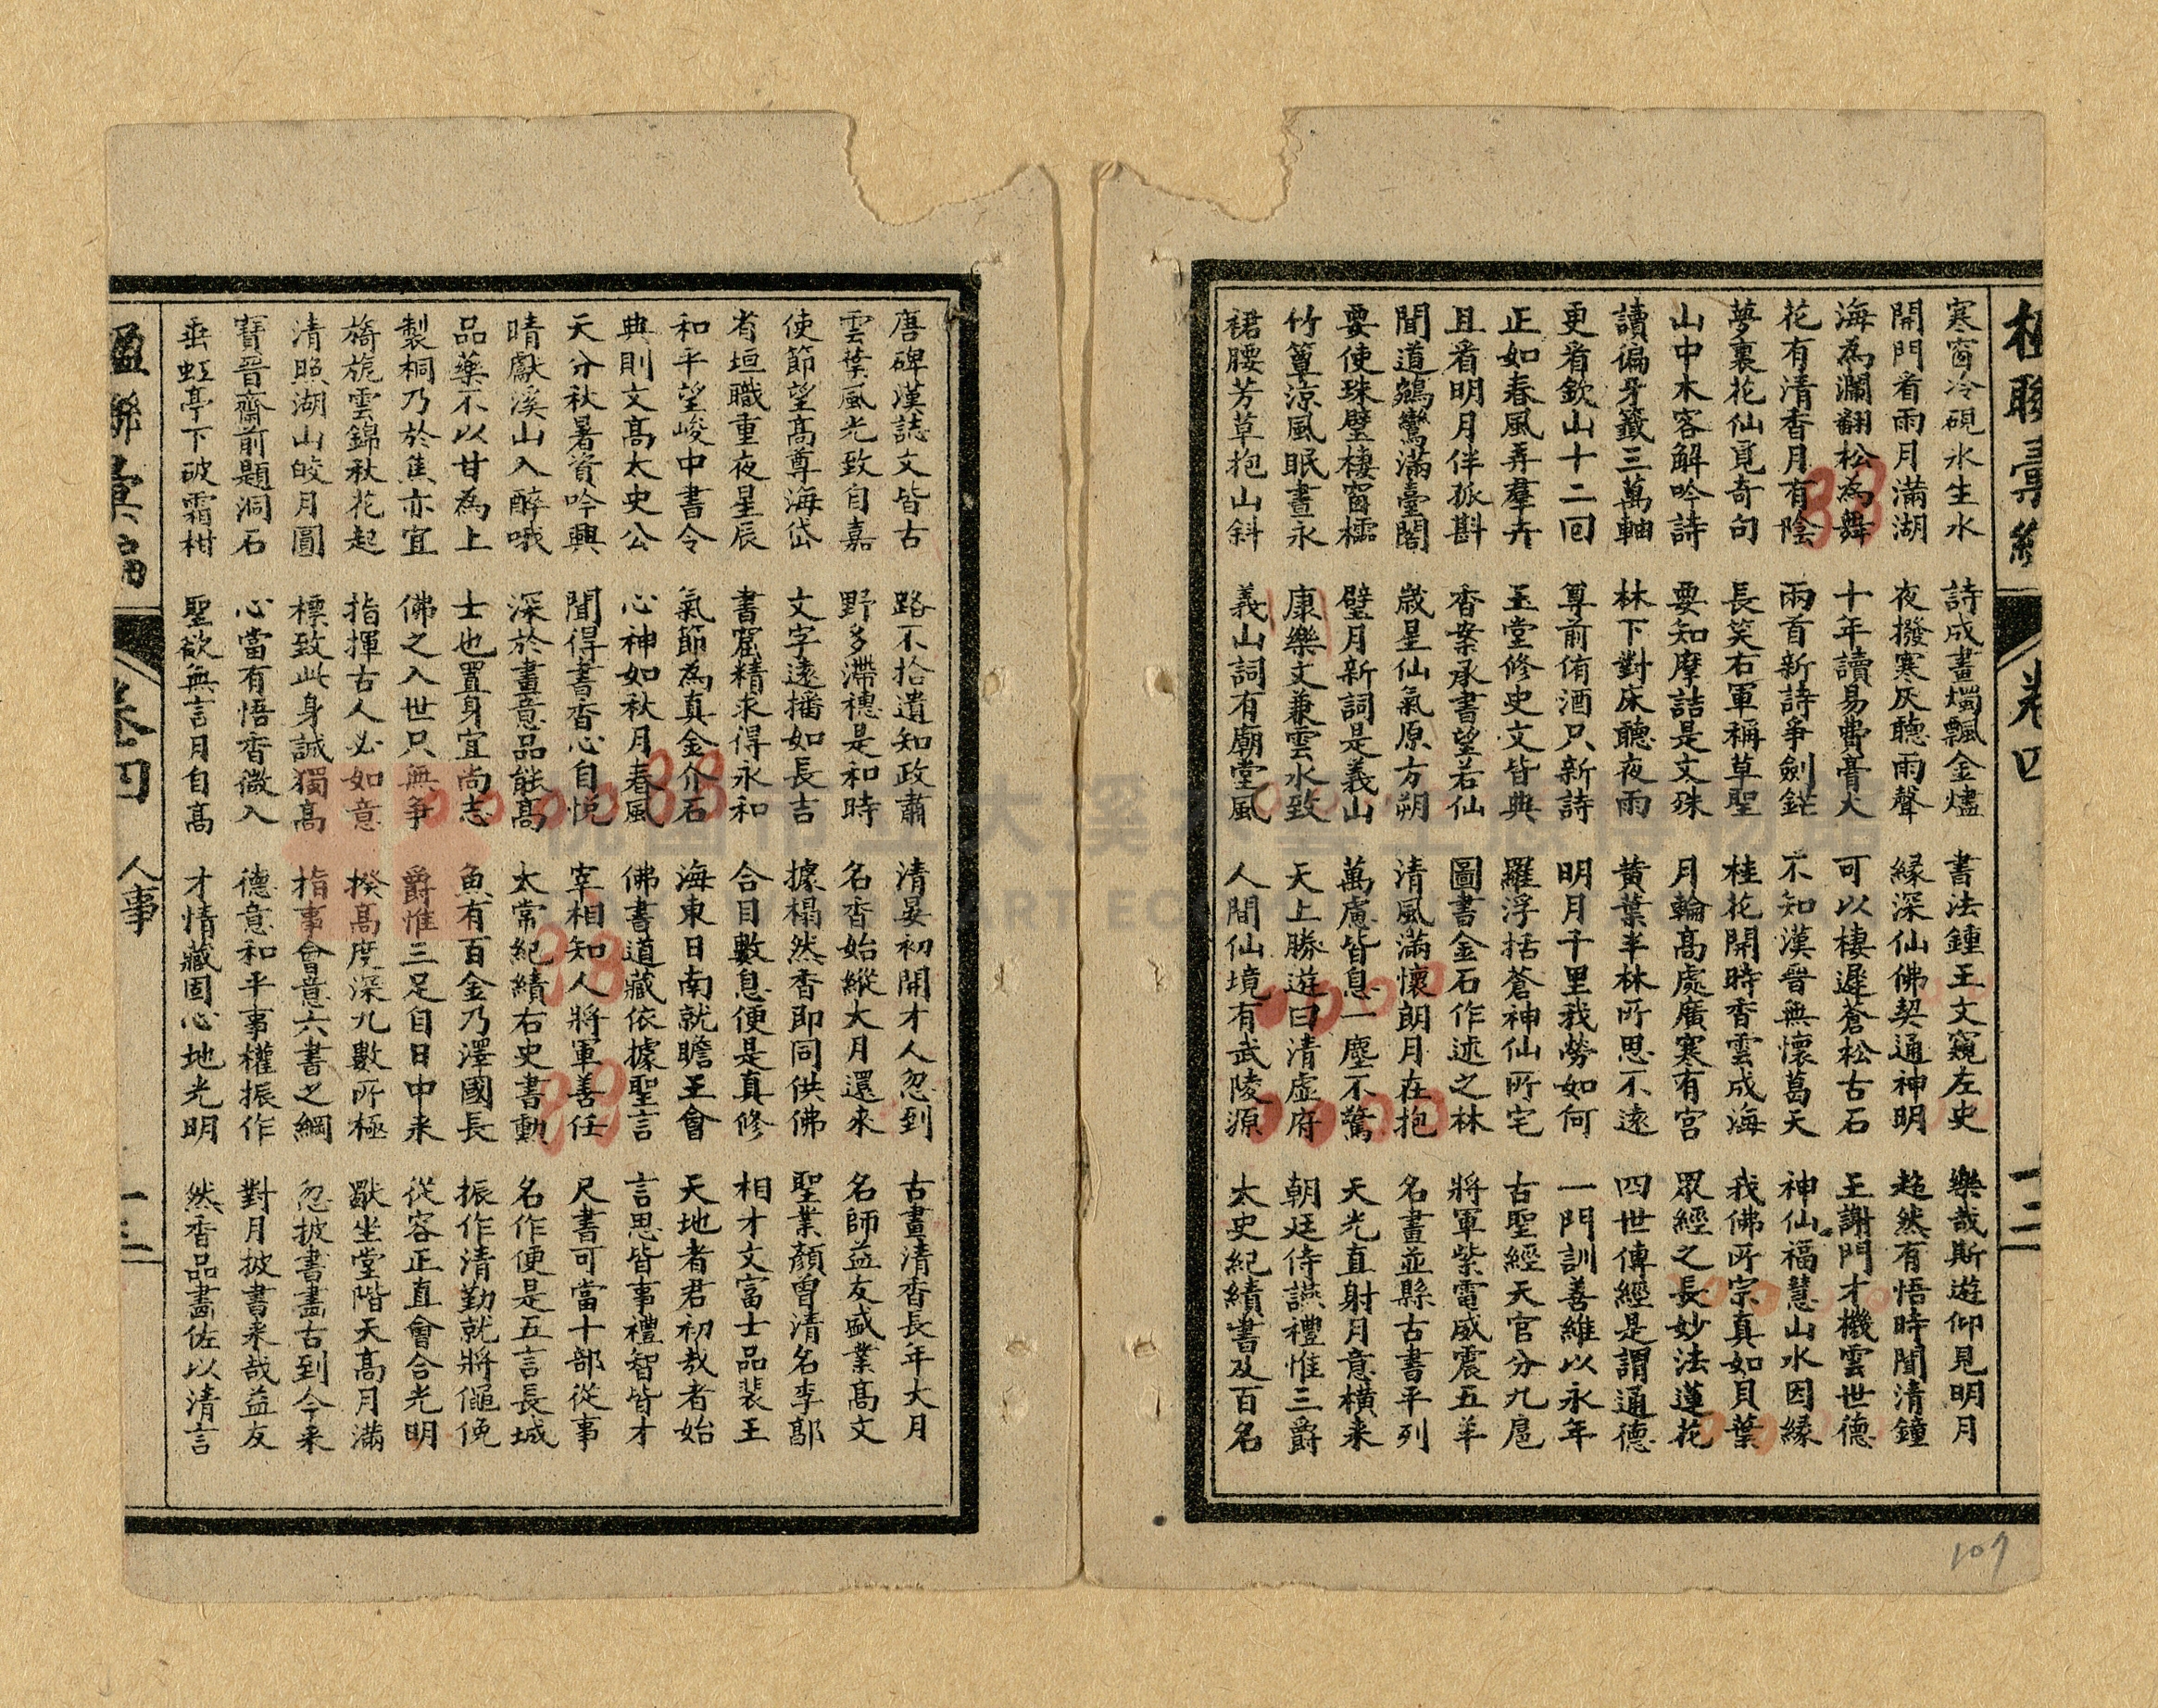 楹聯彙編 卷四 十二
寒窗冷硯水生水 詩成畫燭飄金燼 書法鍾王文窺左史 樂哉斯遊仰見明月
開門看雨月滿湖 夜撥寒灰聽雨聲 緣深仙佛契通神明 超然有悟時聞清鐘
海為瀾翻松為舞 十年讀易費膏火 可以棲遲蒼松古石 王謝門才機雲世德
花有清香月有陰 兩首新詩爭劍鋩 不知漢晉無懷葛天 神仙福慧山水因緣
夢裏花仙覓奇句 長笑右軍稱草聖 桂花開時香雲成海 我佛所宗真如貝葉
山中木客解吟詩 要知摩詰是文殊 月輪高處廣寒有宮 眾經之長妙法蓮花
讀徧牙籤三萬軸 林下對床聽夜雨 黃葉半林所思不遠 四世傳經是謂通德
更看欽山十二回 尊前侑酒只新詩 明月千里我勞如何 一門訓善維以永年
正如春風弄羣卉 玉堂修史文皆典 羅浮括蒼神仙所宅 古聖經天官分九扈
且看明月伴孤斟 香案承書望若仙 圖書金石作述之林 將軍紫電威震五羊
聞道鵷鸞滿臺閣 歲星仙氣原方朔 清風滿懷朗月在抱 名畫並縣古書平列
要使珠璧棲窗櫺 璧月新詞是義山 萬慮皆息一塵不驚 天光直射月意橫來
竹簟涼風眠晝永 康樂文兼雲水致 天上勝遊曰清虛府 朝廷侍讌禮惟三爵
裙腰芳草抱山斜 義山詞有廟堂風 人間仙境有武陵源 太史紀績書及百名
唐碑漢誌文皆古 路不拾遺知政肅 清晏初開才人忽到 古畫清香長年大月
雲葉風光致自嘉 野多滯穗是和時 名香始縱大月還來 名師益友盛業高文
使節望高尊海岱 文字遠播如長吉 據榻然香即同供佛 聖業顏曾清名李郭
省垣職重夜星辰 書窟精求得永和 合目數息便是真修 相才文富士品裴王
和平望峻中書令 氣節為真金介石 海東日南就瞻王會 天地者君初哉者始
典則文高太史公 心神如秋月春風 佛書道藏依據聖言 言思皆事禮智皆才
天分秋暑資吟興 聞得書香心自悅 宰相知人將軍善任 尺書可當十部從事
晴獻溪山入醉哦 深於畫意品能高 太常紀績右史書勳 名作便是五言長城
品藥不以甘為上 士也置身宜尚志 魚有百金乃澤國長 振作清勤就將僶俛
製桐乃於焦亦宜 佛之入世只無爭 爵惟三足自日中来 從容正直會合光明
旖旎雲錦秋花起 指揮古人必如意 揆高度深九數所極 獸坐堂階天高月滿
清照湖山皎月圓 標致此身誠獨高 指事會意六書之綱 忽披書畫古到今来
寶晉齋前題洞石 心當有悟香微入 德意和平事權振作 對月披書来哉益友
垂虹亭下破霜柑 聖欲無言月自高 才情藏固心地光明 然香品畫佐以清言
楹聯彙編 卷四 人事 十三
109